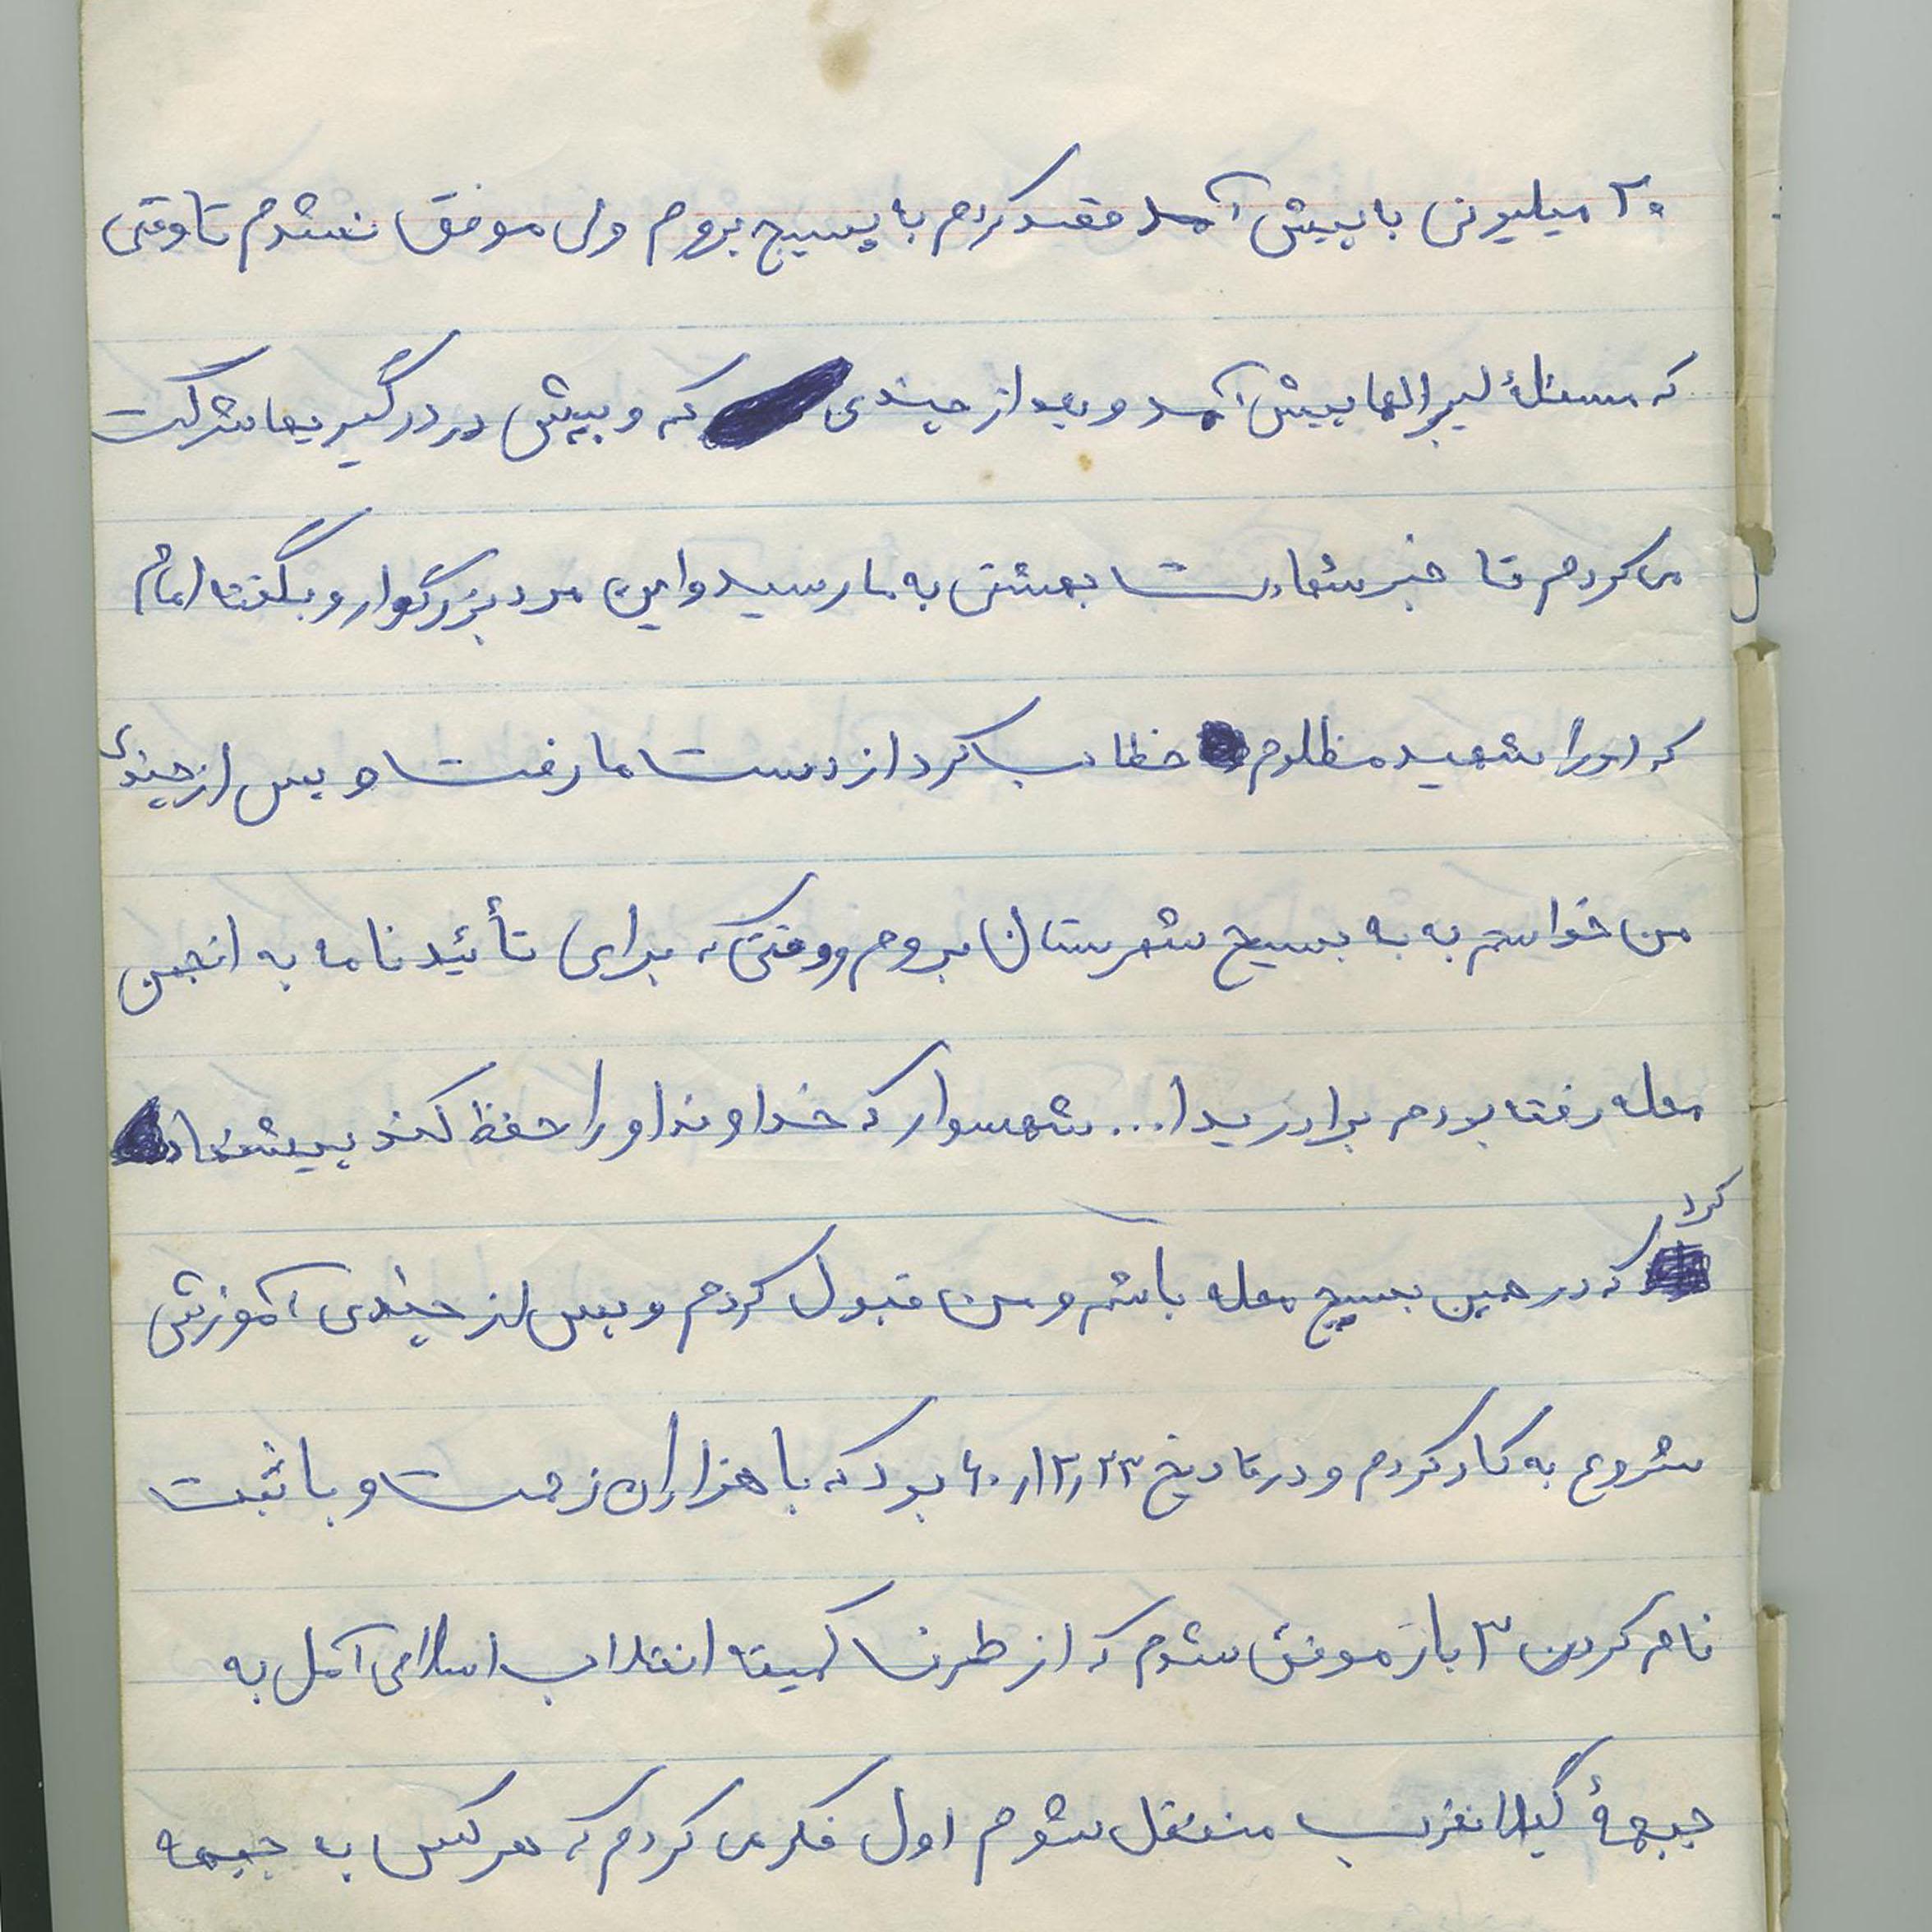 ۲۰ میلیونی با پیش آمد قصد کردم با بسیج بروم ولی موفق نشدم تا وقتی
که مسئلهٔ لیبرالها پیش آمد و بعد از چندی که و بیش در درگیریها شرکت
می کردم تا خبر شهادت بهشتی به ما رسید و این مرد بزرگوار و بگفته امام
که او را شهید مظلوم خطاب کرد از دست ما رفت و پس از چندی
من خواستم به به بسیج شهرستان بروم و وقتی که برای تأئید نامه به انجمن
محله رفته بودم برادر یدا... شهسوار که خداوند او را حفظ کند پیشنهاد
کرد
که در همین بسیج محله باشم و من قبول کردم و پس از چندی آموزش
شروع به کار کردم و در تاریخ ۶۰٫۱۲٫۲۳ بود که با هزاران زحمت و با ثبت
نام کردن ۳ بار موفق شدم که از طرف کمیته انقلاب اسلامی آمل به
جبههٔ گیلانغرب منتقل شوم اول فکر می کردم که هر کس به جبهه